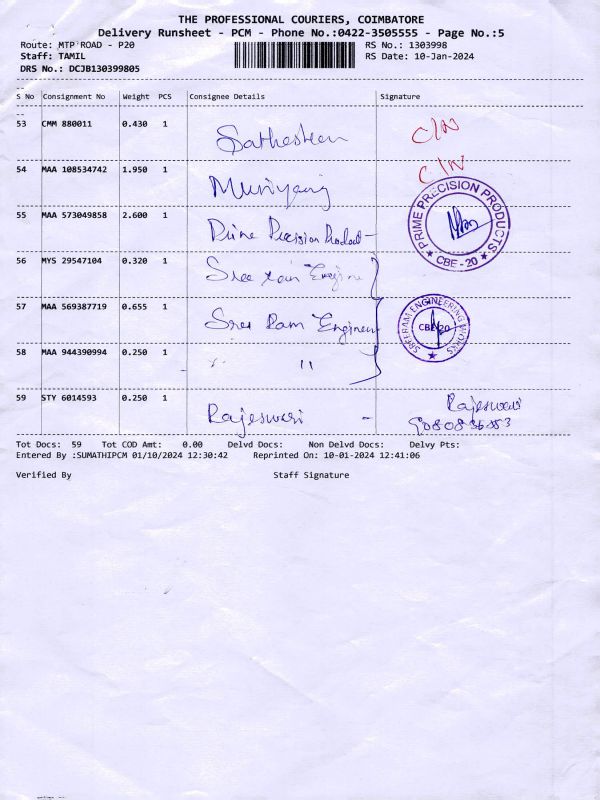 THE PROFESSIONAL COURIERS, COIMBATORE
Delivery Runsheet - PCM - Phone No.:0422-3505555 - Page No.:5
Route: MTP ROAD - P20 RS No.: 1303998
Staff: TAMIL RS Date: 10-Jan-2024
DRS No.: DCJB130399805
S No Consignment No Weight PCS Consignee Details Signature
53 CMM 880011 0.430 1 C/N
54 MAA 108534742 1.950 1 C/N
55 MAA 573049858 2.600 1 Prime Precision Product -
PRIME PRECISION PRODUCTS
★ CBE - 20 ★
56 MYS 29547104 0.320 1 Sree
57 MAA 569387719 0.655 1 Sree Ram Engineer
SREERAM ENGINEERING WORKS
CBE-20
58 MAA 944390994 0.250 1 " 11
59 STY 6014593 0.250 1 Rajeswari - Rajeswari
Tot Docs: 59 Tot COD Amt: 0.00 Delvd Docs: Non Delvd Docs: Delvy Pts:
Entered By :SUMATHIPCM 01/10/2024 12:30:42 Reprinted On: 10-01-2024 12:41:06
Verified By Staff Signature